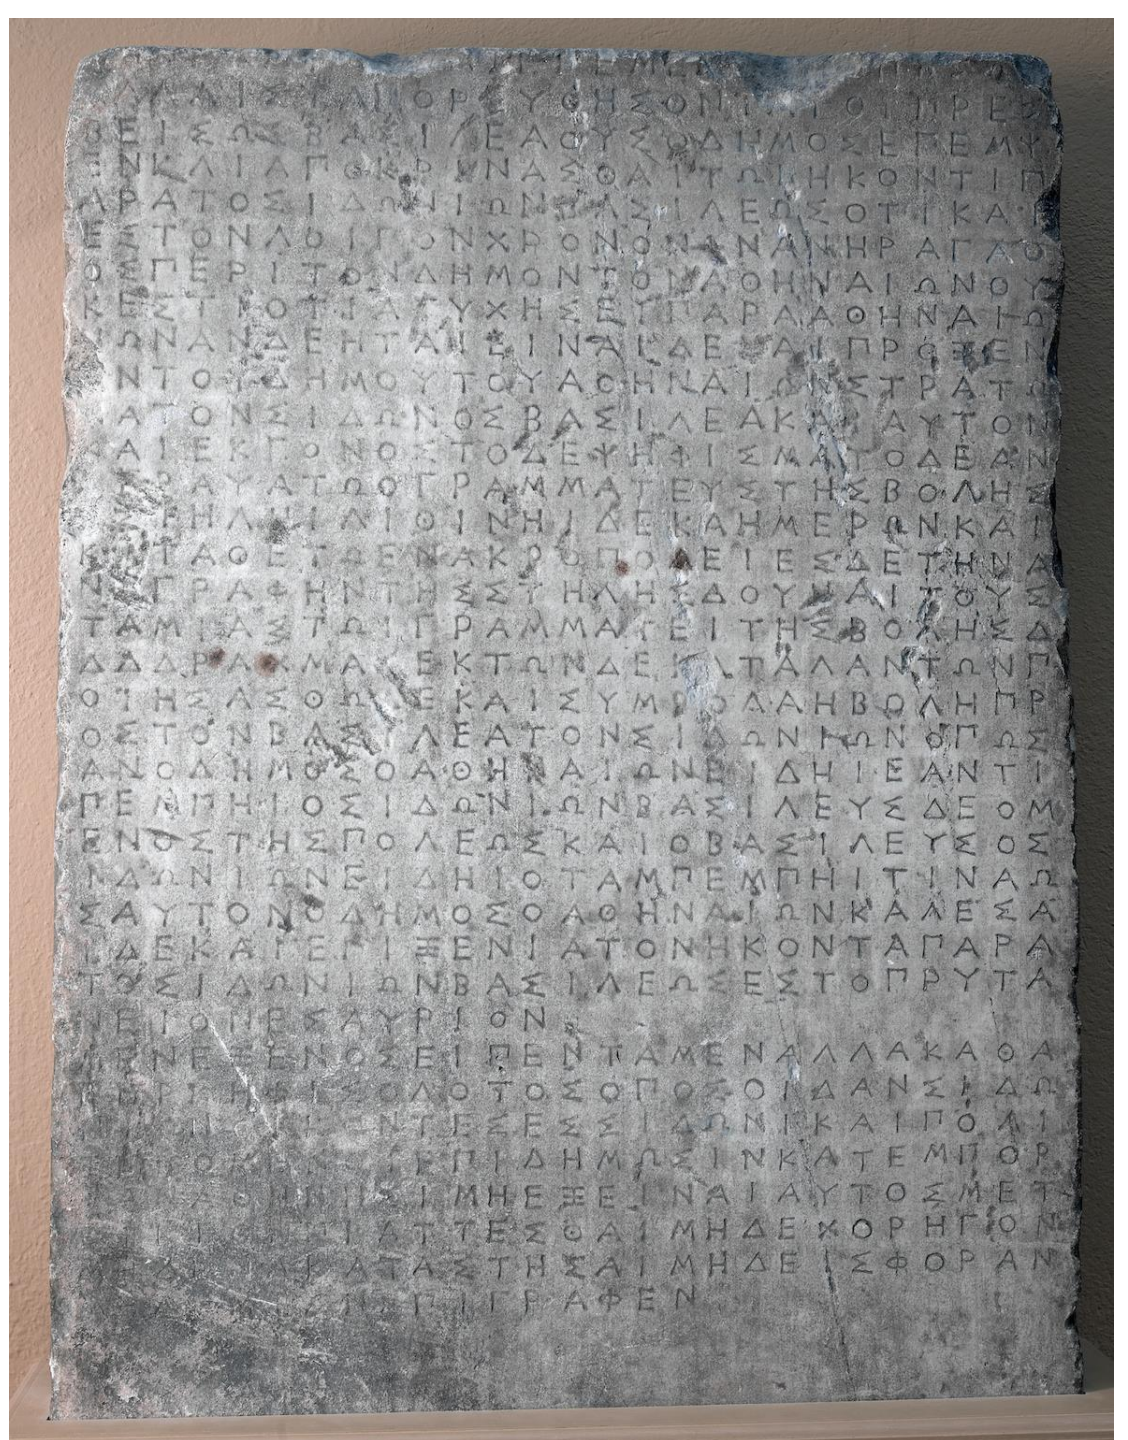 ΑΛΛΙΣΤΑΠΟΡΕΥΘΗΣΟΝΤΑΙΟΙΠΡΕΣ
ΒΕΙΣΩΣΒΑΣΙΛΕΑΟΥΣΟΔΗΜΟΣΕΠΕΜΨ
ΕΝΚΑΙΑΠΟΚΡΙΝΑΣΘΑΙΤΩΙΗΚΟΝΤΙΠ
ΑΡΑΤΟΣΙΔΩΝΙΩΝΒΑΣΙΛΕΩΣΟΤΙΚΑΙ
ΕΣΤΟΝΛΟΙΠΟΝΧΡΟΝΟΝΩΝΑΝΗΡΑΓΑΘΟ
ΣΠΕΡΙΤΟΝΔΗΜΟΝΤΟΝΑΘΗΝΑΙΩΝΟΥ
ΚΕΣΤΙΟΤΙΑΤΥΧΗΣΕΙΠΑΡΑΑΘΗΝΑΙΩ
ΝΩΝΑΝΔΕΗΤΑΙΕΙΝΑΙΔΕΚΑΙΠΡΟΞΕΝ
ΟΝΤΟΥΔΗΜΟΥΤΟΥΑΘΗΝΑΙΩΝΣΤΡΑΤΩ
ΝΑΤΟΝΣΙΔΩΝΟΣΒΑΣΙΛΕΑΚΑΙΑΥΤΟΝ
ΚΑΙΕΚΓΟΝΟΣΤΟΔΕΨΗΦΙΣΜΑΤΟΔΕΑΝ
ΑΓΡΑΨΑΤΩΟΓΡΑΜΜΑΤΕΥΣΤΗΣΒΟΛΗΣ
ΕΣΤΗΛΗΙΛΙΘΙΝΗΙΔΕΚΑΗΜΕΡΩΝΚΑΙ
ΚΑΤΑΘΕΤΩΕΝΑΚΡΟΠΟΛΕΙΕΣΔΕΤΗΝΑ
ΝΑΓΡΑΦΗΝΤΗΣΣΤΗΛΗΣΔΟΥΝΑΙΤΟΥΣ
ΤΑΜΙΑΣΤΩΙΓΡΑΜΜΑΤΕΙΤΗΣΒΟΛΗΣΔ
ΔΔΔΡΑΧΜΑΣΕΚΤΩΝΔΕΚΑΤΑΛΑΝΤΩΝΠ
ΟΙΗΣΑΣΘΩΔΕΚΑΙΣΥΜΒΟΛΑΗΒΟΛΗΠΡ
ΟΣΤΟΝΒΑΣΙΛΕΑΤΟΝΣΙΔΩΝΙΩΝΟΠΩΣ
ΑΝΟΔΗΜΟΣΟΑΘΗΝΑΙΩΝΕΙΔΗΙΕΑΝΤΙ
ΠΕΜΠΗΙΟΣΙΔΩΝΙΩΝΒΑΣΙΛΕΥΣΔΕΟΜ
ΕΝΟΣΤΗΣΠΟΛΕΩΣΚΑΙΟΒΑΣΙΛΕΥΣΟΣ
ΙΔΩΝΙΩΝΕΙΔΗΙΟΤΑΜΠΕΜΠΗΙΤΙΝΑΩ
ΣΑΥΤΟΝΟΔΗΜΟΣΟΑΘΗΝΑΙΩΝΚΑΛΕΣΑ
ΙΔΕΚΑΙΕΠΙΞΕΝΙΑΤΟΝΗΚΟΝΤΑΠΑΡΑ
ΤΟΣΙΔΩΝΙΩΝΒΑΣΙΛΕΩΣΕΣΤΟΠΡΥΤΑ
ΝΕΙΟΝΕΣΑΥΡΙΟΝ
ΜΕΝΕΞΕΝΟΣΕΙΠΕΝΤΑΜΕΝΑΛΛΑΚΑΘΑ
ΠΕΡΚΗΦΙΣΟΔΟΤΟΣΟΠΟΣΟΙΔΑΝΣΙΔΩ
ΝΤΕΣΕΣΣΙΔΩΝΙΚΑΙΠΟΛΙ
ΕΠΙΔΗΜΩΣΙΝΚΑΤΕΜΠΟΡ
ΙΑΝΑΘΗΝΗΣΙΜΗΕΞΕΙΝΑΙΑΥΤΟΣΜΕΤ
ΠΡΑΤΤΕΣΘΑΙΜΗΔΕΧΟΡΗΓΟΝ
ΚΑΤΑΣΤΗΣΑΙΜΗΔΕΙΣΦΟΡΑΝ
ΕΠΙΓΡΑΦΕΝ